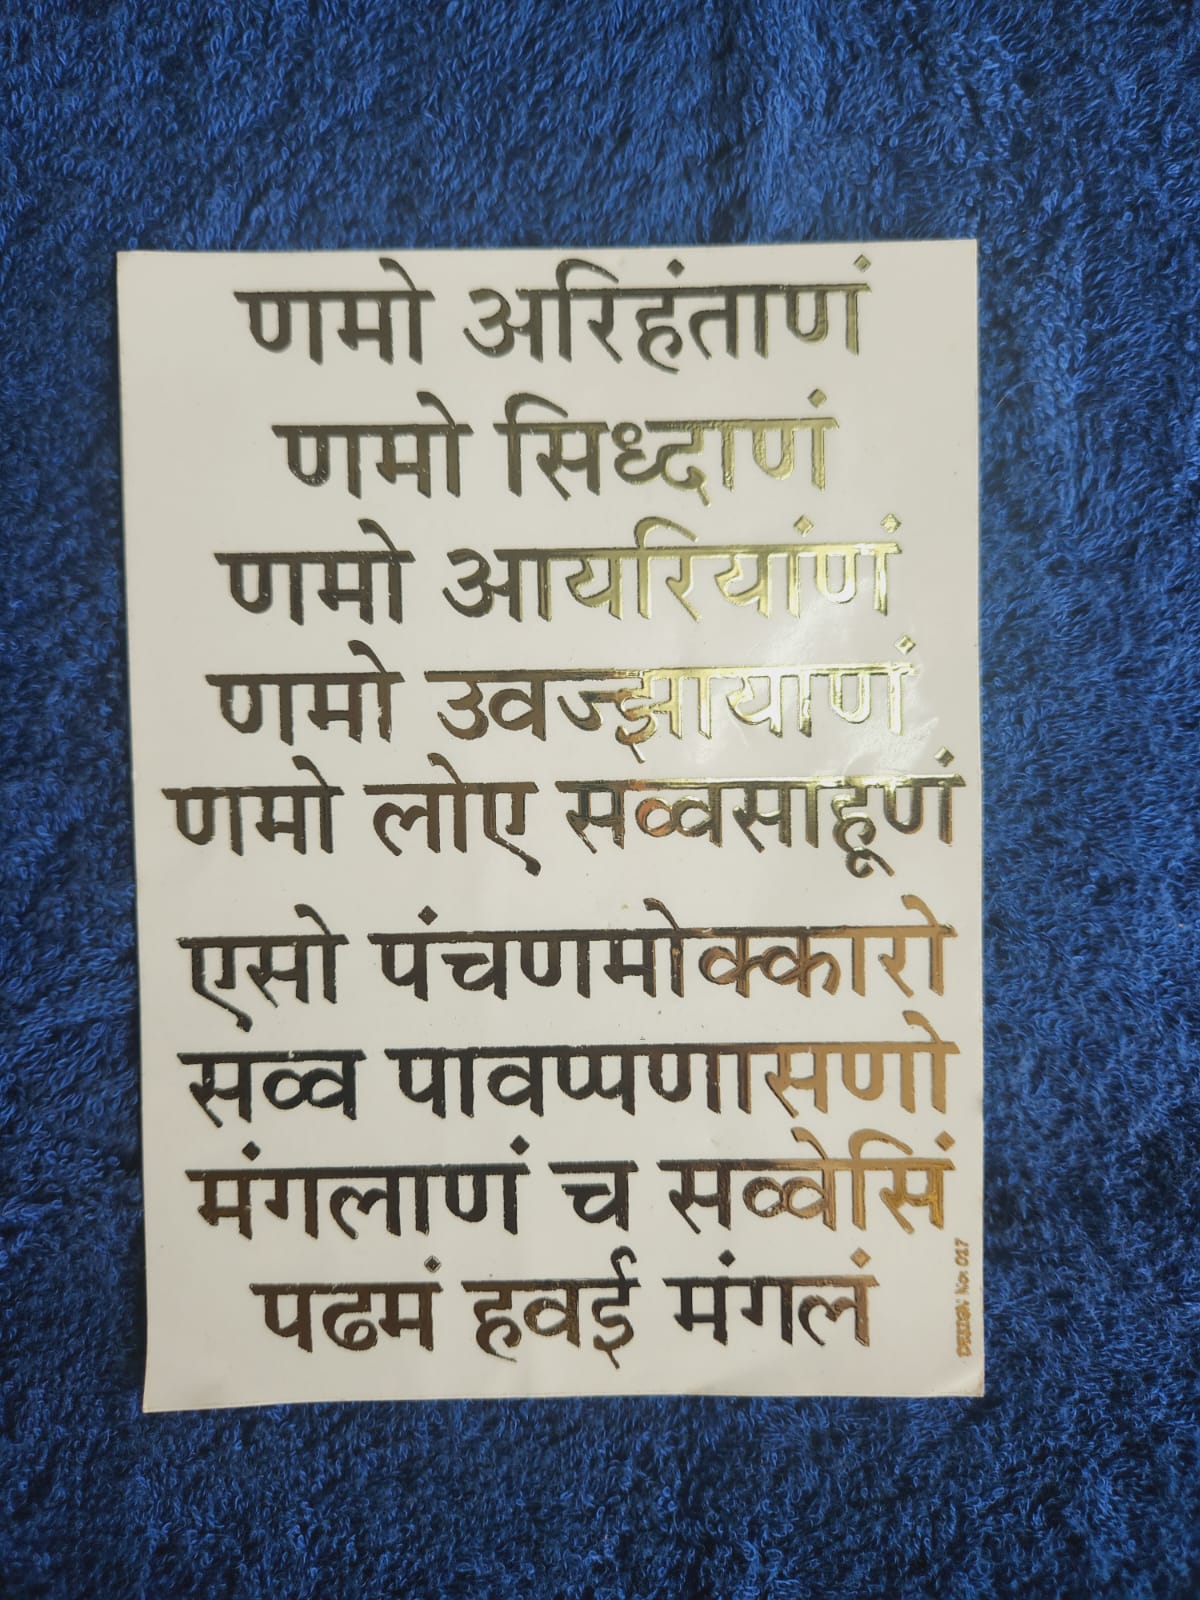 णमो अरिहंताणं
णमो सिध्दाणं
णमो आयरियांणं
णमो उवज्झायाणं
णमो लोए सव्वसाहूणं
एसो पंचणमोक्कारो
सव्व पावप्पणासणो
मंगलाणं च सव्वेसिं
पढमं हवई मंगलं
DESIGN No: 017